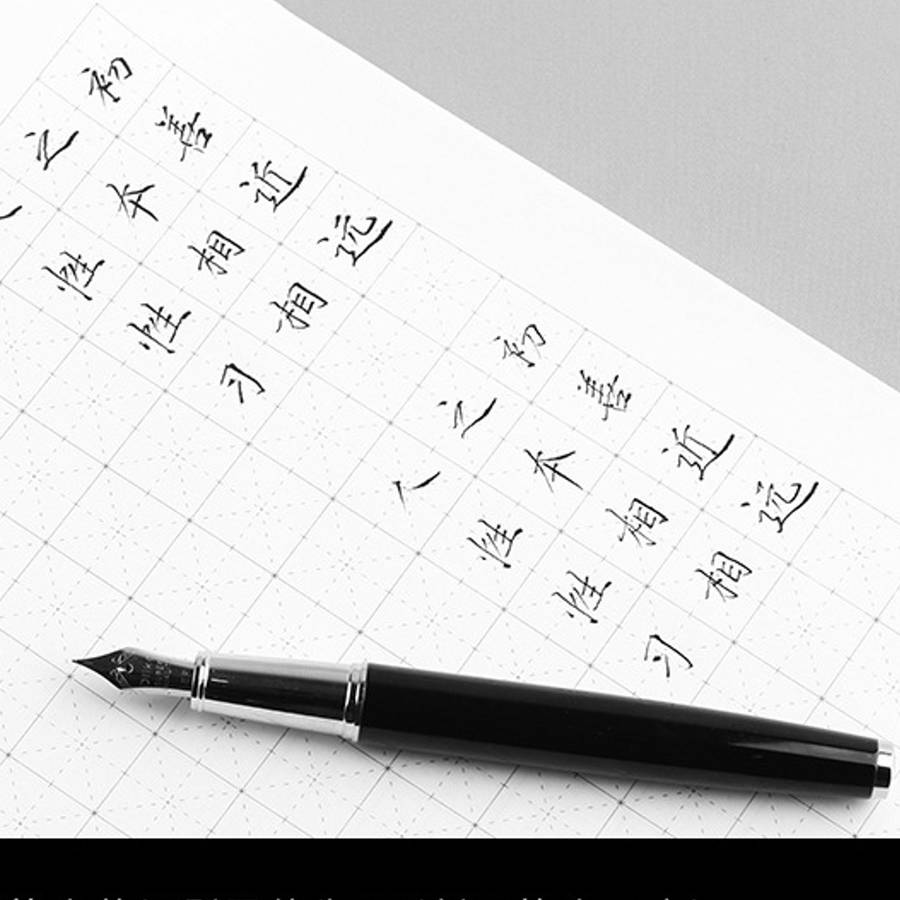 之初
性本善
性相近
习相远
人之初
性本善
性相近
习相远